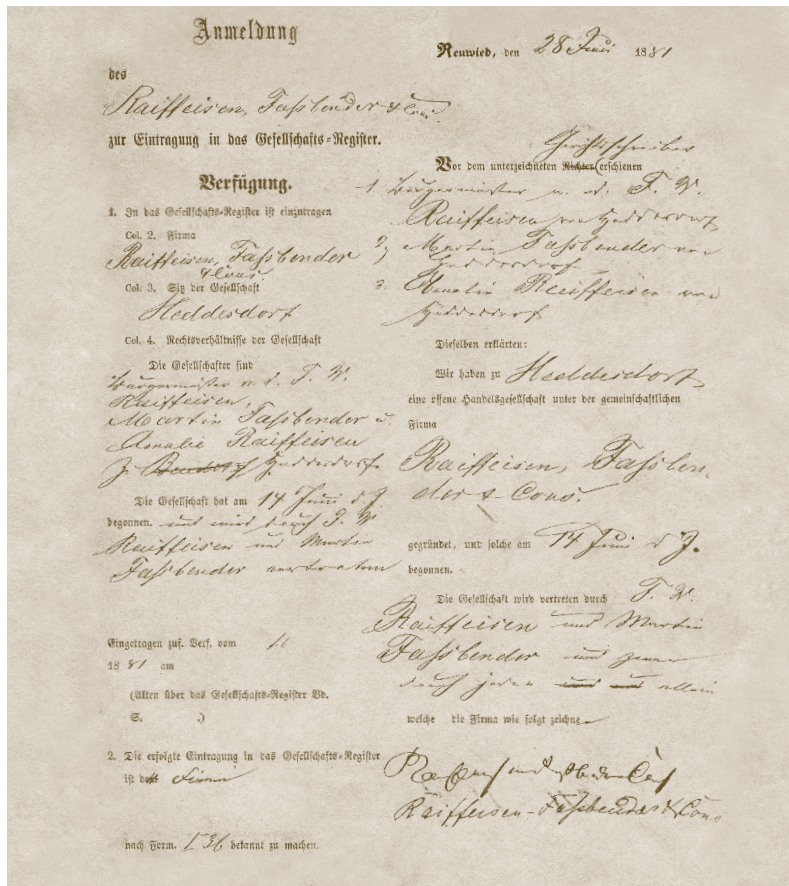 Anmeldung
des
Raiffeisen, Faßbender & Cons.
zur Eintragung in das Gesellschafts-Register.
Verfügung.
1. In das Gesellschafts-Register ist einzutragen
Col. 2. Firma
Raiffeisen, Faßbender
& Cons.
Col. 3. Sitz der Gesellschaft
Heddesdorf
Col. 4. Rechtsverhältnisse der Gesellschaft
Die Gesellschafter sind
Bürgermeister a. d. F. W.
Raiffeisen,
Martin Faßbender u.
Amalie Raiffeisen
Heddesdorf
Die Gesellschaft hat am 14 Juni d J
begonnen. und wird durch F. W
Raiffeisen und Martin
Faßbender vertreten
Eingetragen zuf. Verf. vom
1881 am
(Akten über das Gesellschafts-Register Bd.
S. .)
2. Die erfolgte Eintragung in das Gesellschafts-Register
ist Firma
nach Form. 36 bekannt zu machen.
Neuwied, den 28 Juni 1881
Gerichtsschreiber
Vor dem unterzeichneten Richter erschienen
1 Bürgermeister a. d. F. W.
Raiffeisen von Heddesdorf
2, Martin Faßbender von
Heddesdorf
3. Amalie Raiffeisen von
Heddesdorf
Dieselben erklärten:
Wir haben zu Heddesdorf
eine offene Handelsgesellschaft unter der gemeinschaftlichen
Firma
Raiffeisen, Faßben-
der & Cons.
gegründet, und solche am 14 Juni d J.
begonnen.
Die Gesellschaft wird vertreten durch F. W.
Raiffeisen und Martin
Faßbender und zwar
durch jeden allein
welche die Firma wie folgt zeichnen
Raiffeisen-Faßbender & Cons